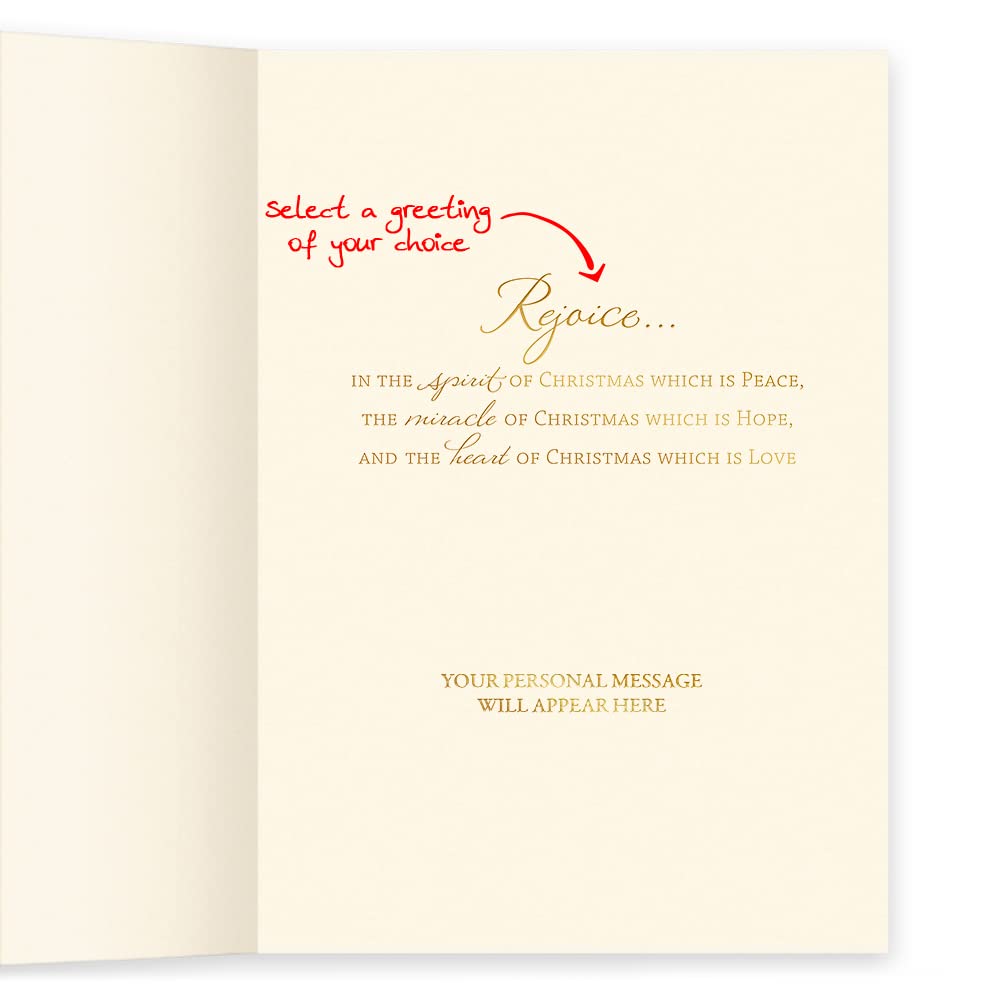 select a greeting
of your choice
Rejoice...
IN THE spirit OF CHRISTMAS WHICH IS PEACE,
THE miracle OF CHRISTMAS WHICH IS HOPE,
AND THE heart OF CHRISTMAS WHICH IS LOVE
YOUR PERSONAL MESSAGE
WILL APPEAR HERE